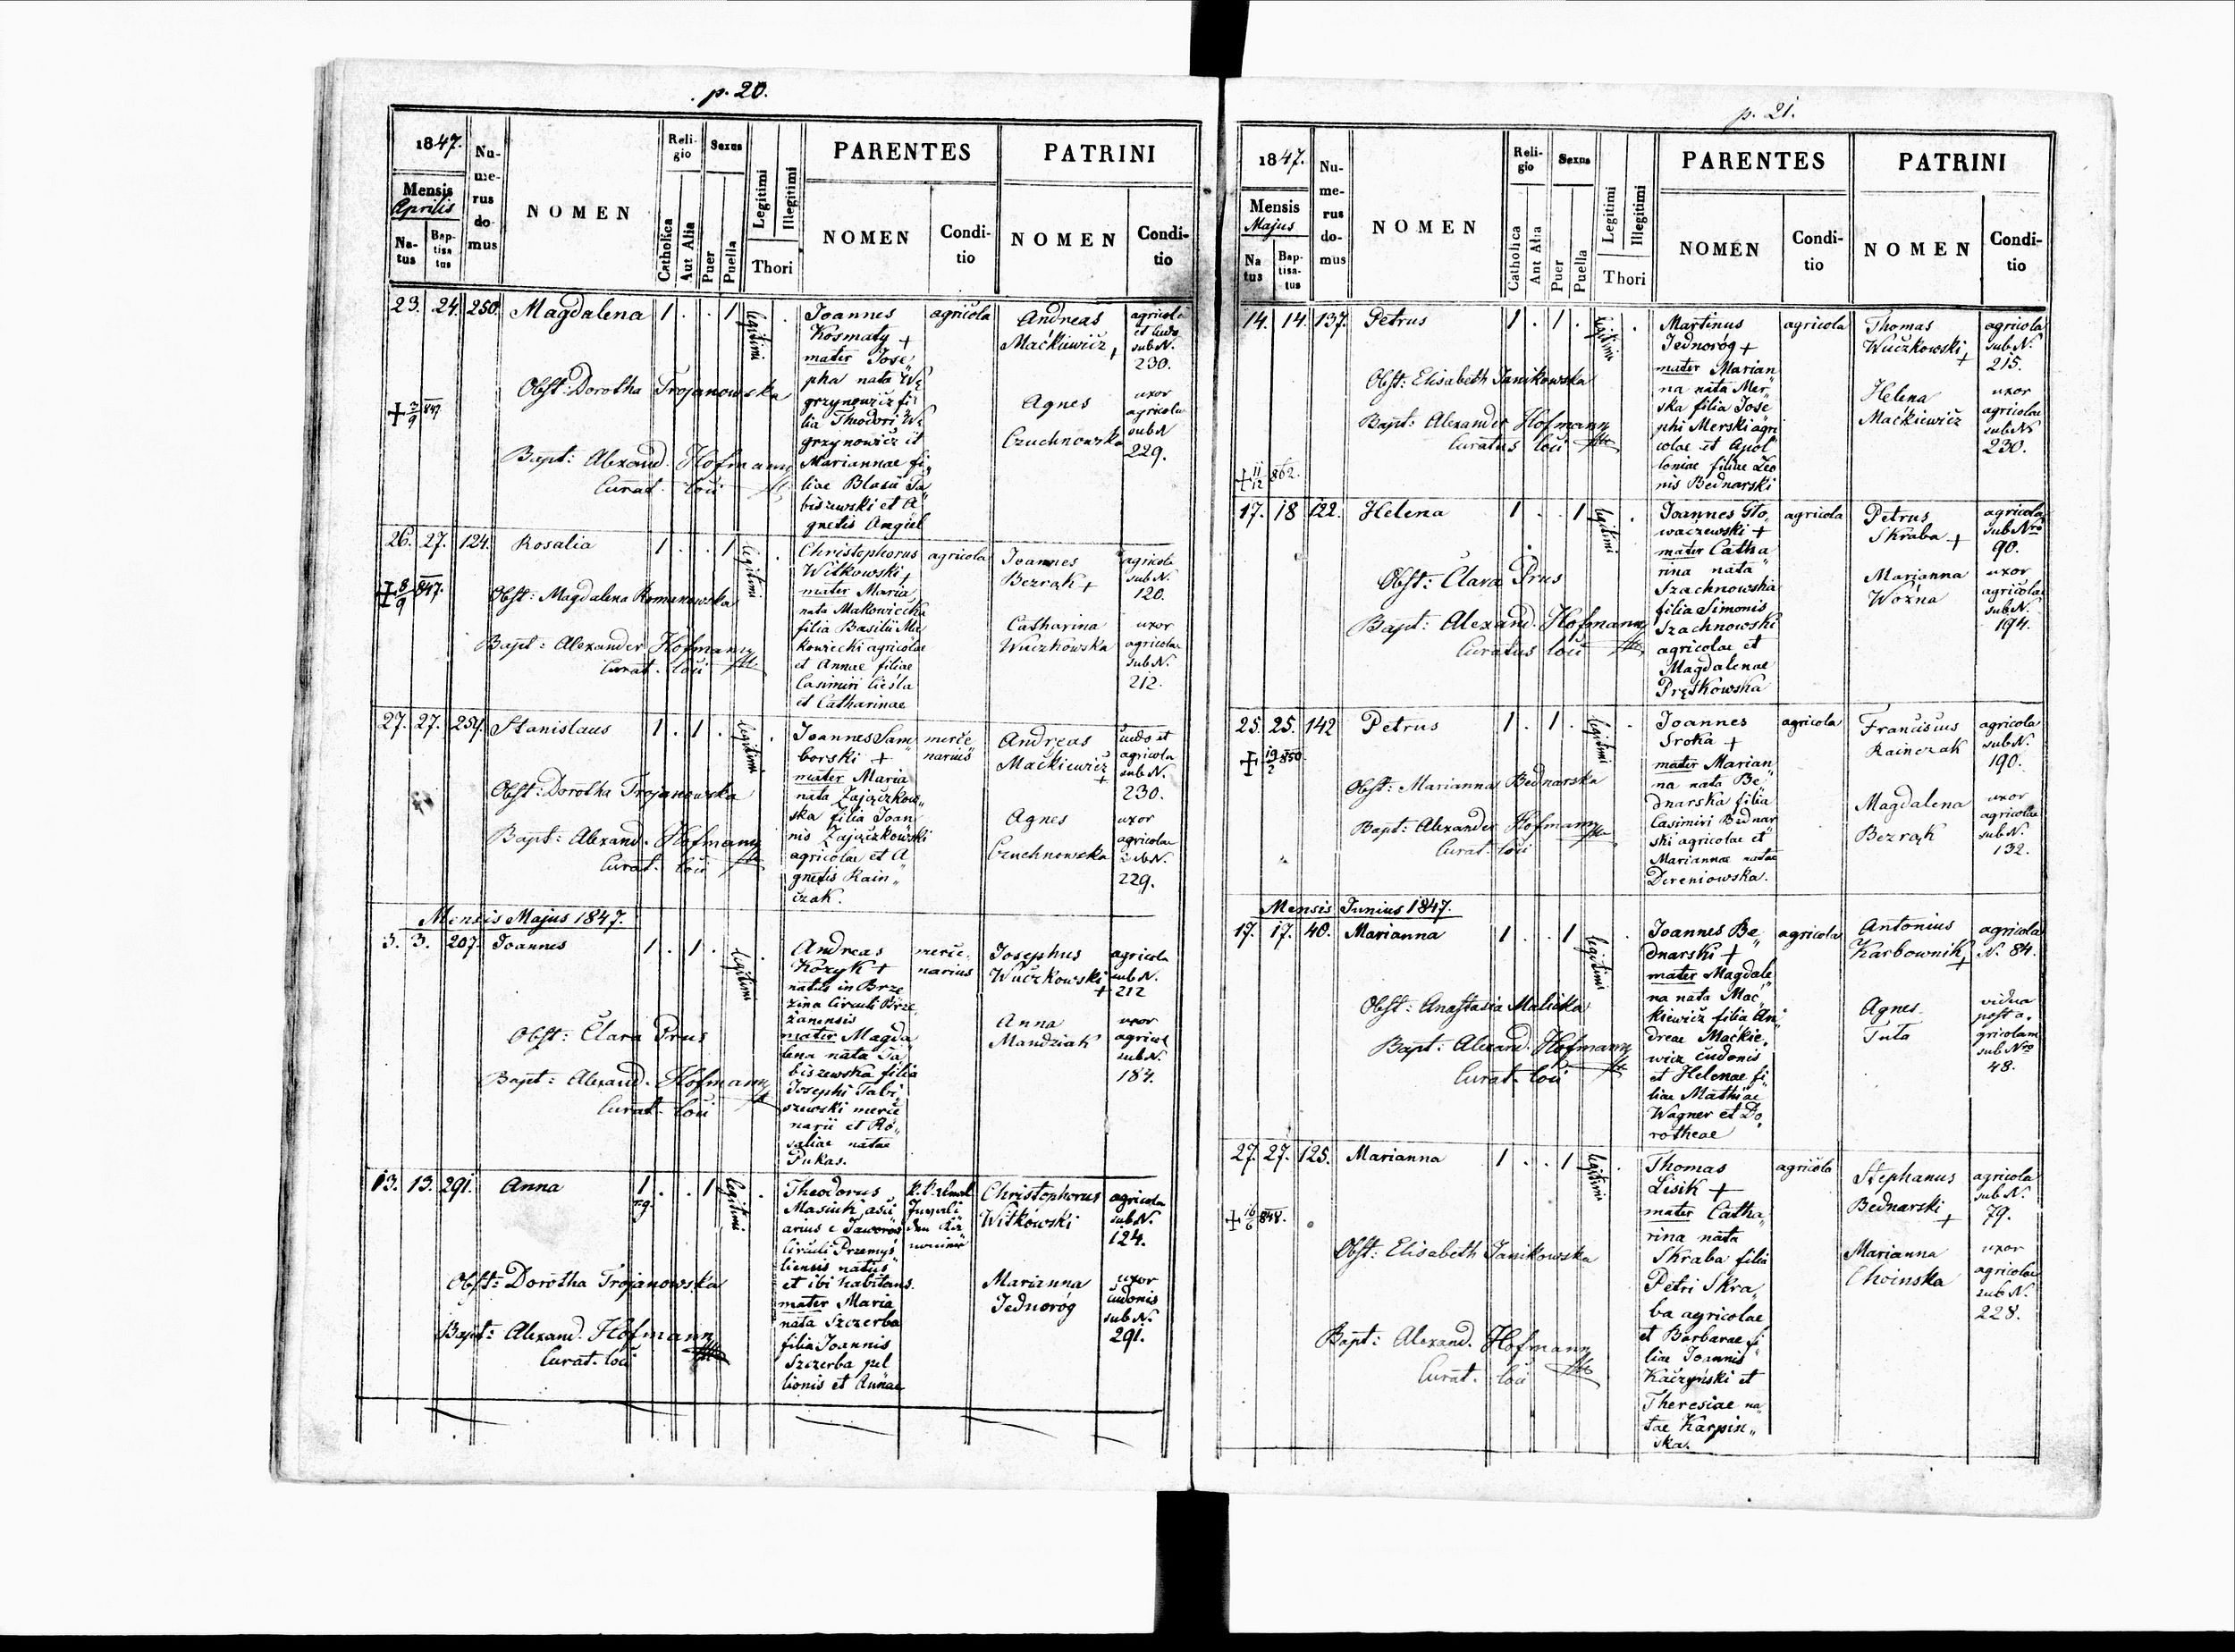 p. 20.
1847.
Mensis
Aprilis
Na-
tus
Bap-
tisa
tus
Nu-
me-
rus
do-
mus
NOMEN
Reli-
gio
Catholica
Aut Alia
Sexus
Puer
Puella
Legitimi
Illegitimi
Thori
PARENTES
NOMEN
Condi-
tio
PATRINI
NOMEN
Condi-
tio
23. 24. 250. Magdalena 1 . . 1 legitimi .
Obst: Dorotha Trojanowska
+ 3/9 847.
Bapt: Alexand. Hofmann
Curat. loci
Joannes
Kosmaty +
mater Jose„
pha nata Wę
grzynowicz fi„
lia Theodori Wę
grzynowicz et
Mariannae fi„
liae Blasii Ta
biszewski et A„
gnetis Angiel
agricola
Andreas
Maćkiewicz +
agricola
et cudo
sub N.
230.
Agnes
Czuchnowska
uxor
agricolae
sub N
229.
26. 27. 124. Rosalia 1 . . 1 legitimi .
+ 8/9 847.
Obst: Magdalena Romanowska
Bapt: Alexander Hofmann
Curat. loci
Christophorus
Witkowski +
mater Maria
nata Makowiecka
filia Basilii Ma
kowiecki agricolae
et Annae filiae
Casimiri Cieśla
et Catharinae
agricola
Joannes
Bezrąk +
agricola
sub N.
120.
Catharina
Wuczkowska
uxor
agricolae
sub N.
212.
27. 27. 254. Stanislaus 1 . 1 . legitimi .
Obst: Dorotha Trojanowska
Bapt: Alexand. Hofmann
Curat. loci
Joannes Sam„
borski +
mater Maria
nata Zajączkow„
ska filia Joan„
nis Zajączkowski
agricolae et A
gnetis Rain„
czak.
merce
narius
Andreas
Maćkiewicz +
cudo et
agricola
sub N.
230.
Agnes
Czuchnowska
uxor
agricolae
sub N.
229.
Mensis Majus 1847.
3. 3. 207. Joannes 1 . 1 . legitimi .
Obst: Clara Prus
Bapt: Alexand. Hofmann
Curat. loci
Andreas
Kozyk +
natus in Brze
zina Circuli Brze„
żanensis
mater Magda„
lena nata Ta„
biszewska filia
Josephi Tabi„
szewski merce
narii et Ro„
saliae natae
Pukas.
merce„
narius
Josephus
Wuczkowski +
agricola
sub N.
212
Anna
Mandziak
uxor
agricol
sub N.
184.
13. 13. 291. Anna 1 . . 1 legitimi .
r. g.
Obst: Dorotha Trojanowska
Bapt: Alexand. Hofmann
Curat. loci
Theodorus
Masiuk
arius e Jaworow
Circuli Przemyś„
liensis natus
et ibi habitans.
mater Maria
nata Szczerba
filia Joannis
Szczerba pel
lionis et Annae
Christophorus
Witkowski
agricola
sub N.
124.
Marianna
Jednoróg
uxor
cudonis
sub N.
291.
p. 21.
1847.
Mensis
Majus
Na
tus
Bap-
tisa-
tus
Nu-
me-
rus
do-
mus
NOMEN
Reli-
gio
Catholica
Ant Alia
Sexus
Puer
Puella
Legitimi
Illegitimi
Thori
PARENTES
NOMEN
Condi-
tio
PATRINI
NOMEN
Condi-
tio
14. 14. 137. Petrus 1 . 1 . legitimi .
Obst: Elisabeth Janikowska
Bapt: Alexander Hofmann
Curatus loci
+ 11/12 862.
Martinus
Jednoróg +
mater Marian
na nata Mer„
ska filia Jose
phi Merski agri
colae et Apol„
loniae filiae Leo
nis Bednarski
agricola
Thomas
Wuczkowski +
agricola
sub N.
215.
Helena
Maćkiewicz
uxor
agricolae
sub N
230.
17. 18 122. Helena 1 . . 1 legitimi .
Obst: Clara Prus
Bapt: Alexand. Hofmann
Curatus loci
Joannes Gło„
waczewski +
mater Catha„
rina nata
Szachnowska
filia Simonis
Szachnowski
agricolae et
Magdalenae
Prętkowska
agricola
Petrus
Skraba +
agricola
sub Nro
90.
Marianna
Woźna
uxor
agricolae
sub N.
194.
25. 25. 142 Petrus 1 . 1 . legitimi .
+ 19/2 850
Obst: Marianna Bednarska
Bapt: Alexander Hofmann
Curat. loci
Joannes
Sroka +
mater Marian„
na nata Be„
dnarska filia
Casimiri Bednar
ski agricolae et
Mariannae natae
Dereniowska.
agricola
Franciscus
Rainczak
agricola
sub N.
190.
Magdalena
Bezrąk
uxor
agricolae
sub N.
132.
Mensis Junius 1847.
17. 17. 40. Marianna 1 . . 1 legitimi .
Obst: Anastasia Malicka
Bapt: Alexand. Hofmann
Curat. loci
Joannes Be„
dnarski +
mater Magdale„
na nata Mać„
kiewicz filia An„
dreae Maćkie„
wicz cudonis
et Helenae fi„
liae Mathiae
Wagner et Do„
rotheae
agricola
Antonius
Karbownik +
agricola
N. 84.
Agnes
Tuta
vidua
post a„
gricolam
sub Nro
48.
27. 27. 125. Marianna 1 . . 1 legitimi .
+ 16/6 848.
Obst: Elisabeth Janikowska
Bapt: Alexand. Hofmann
Curat. loci
Thomas
Lisik +
mater Catha„
rina nata
Skraba filia
Petri Skra„
ba agricolae
et Barbarae fi„
liae Joannis
Kaczyński et
Theresiae na„
tae Karpin„
ska.
agricola
Stephanus
Bednarski +
agricola
sub N.
79.
Marianna
Choinska
uxor
agricolae
sub N.
228.